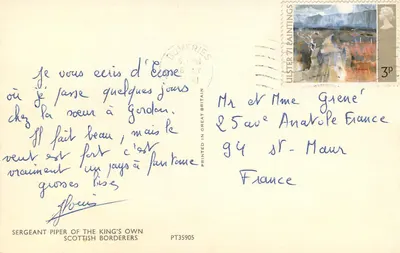 Je vous ecris d'Ecosse
où je passe quelques jours
chez la sœur à Gordon.
Il fait beau, mais le
vent est fort c'est
vraiment un pays à fantome
grosses bises
DUMFRIES
ULSTER '71 PAINTINGS
3P
PRINTED IN GREAT BRITAIN
Mr et Mme Grené
25 ave Anatole France
94 St-Maur
France
SERGEANT PIPER OF THE KING'S OWN
SCOTTISH BORDERERS
PT35905